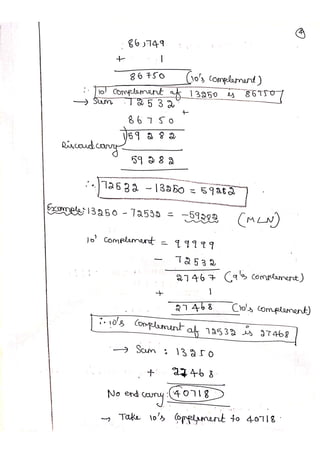 86,749
+ 1
86750 (10's complement)
∴ 10' complement of 13250 is 86750
→ Sum 72532
+
86750
1)59282
Discard carry
59282
∴ 72532 - 13250 = 59282
Example: 13250 - 72532 = -59282 (MLN)
10' complement = 99999
- 72532
27467 (9's complement)
+ 1
27468 (10's complement)
∴ 10's complement of 72532 is 27468
→ Sum : 13250
+ 27468
No end carry: 40718
→ Take 10's complement to 40718